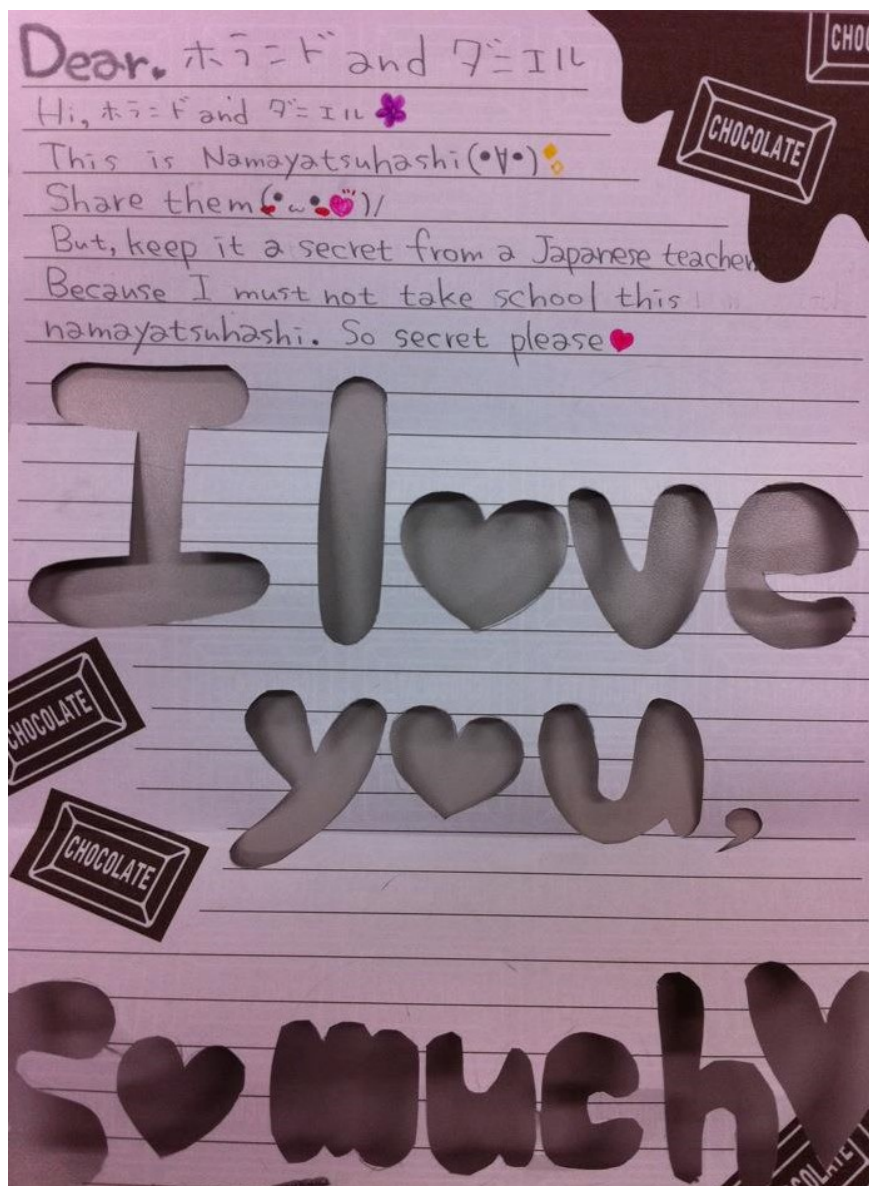 Dear. ホラニド and ダニエル
CHOCOLATE
Hi, ホラニド and ダニエル
This is Namayatsuhashi(•∀•)
Share them(•ω•)/
But, keep it a secret from a Japanese teacher
Because I must not take school this
namayatsuhashi. So secret please♥
I l♥ve
y♥u,
CHOCOLATE
CHOCOLATE
S♥ much♥